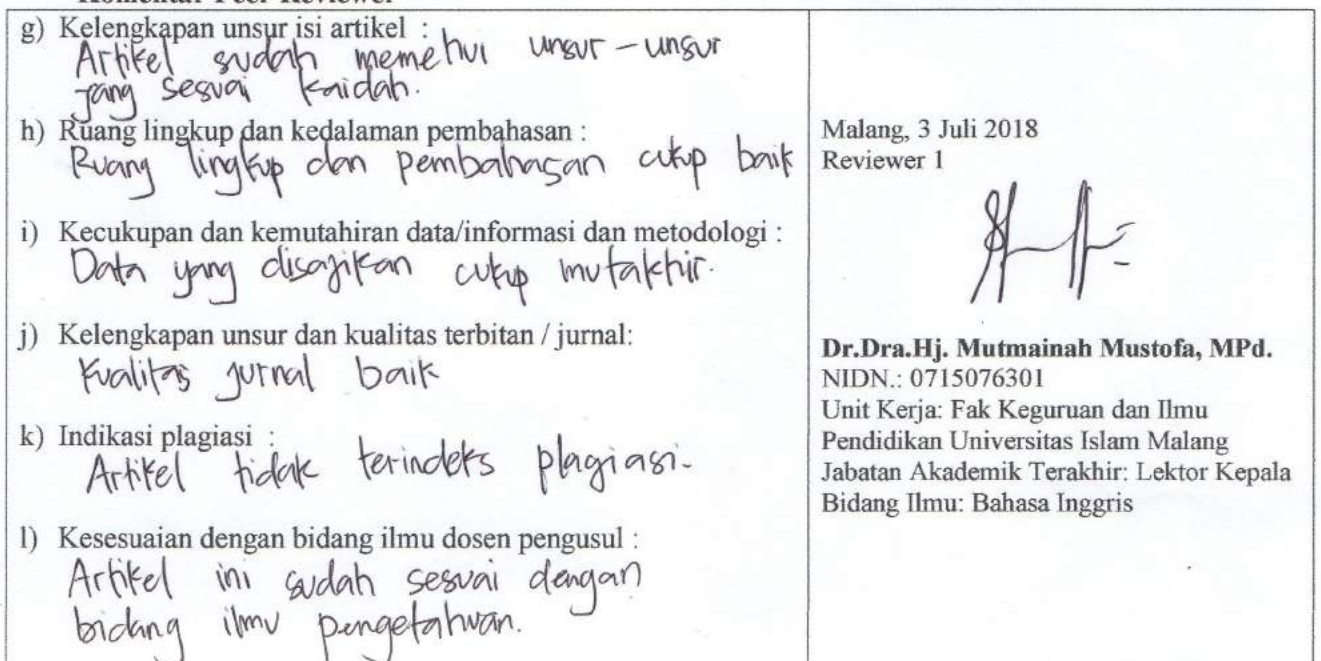 Komentar Peer Reviewer
g) Kelengkapan unsur isi artikel :
Artikel sudah memehui unsur-unsur
yang sesuai kaidah.
h) Ruang lingkup dan kedalaman pembahasan :
Ruang lingkup dan pembahasan cukup baik
i) Kecukupan dan kemutahiran data/informasi dan metodologi :
Data yang disajikan cukup mutakhir.
j) Kelengkapan unsur dan kualitas terbitan / jurnal:
Kualitas jurnal baik
k) Indikasi plagiasi :
Artikel tidak terindeks plagiasi.
l) Kesesuaian dengan bidang ilmu dosen pengusul :
Artikel ini sudah sesuai dengan
bidang ilmu pengetahuan.
Malang, 3 Juli 2018
Reviewer 1
Dr.Dra.Hj. Mutmainah Mustofa, MPd.
NIDN.: 0715076301
Unit Kerja: Fak Keguruan dan Ilmu
Pendidikan Universitas Islam Malang
Jabatan Akademik Terakhir: Lektor Kepala
Bidang Ilmu: Bahasa Inggris